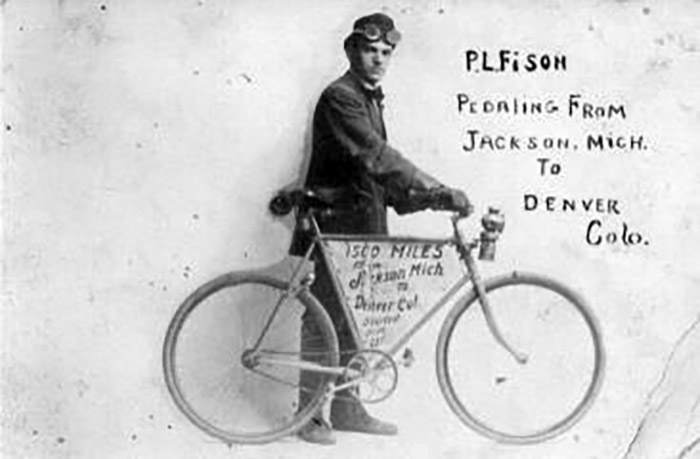 P.L.FiSON
PEDALING FROM
JACKSON, MICH.
TO
DENVER
Colo.
1500 MILES
from
Jackson Mich
to
Denver Col.